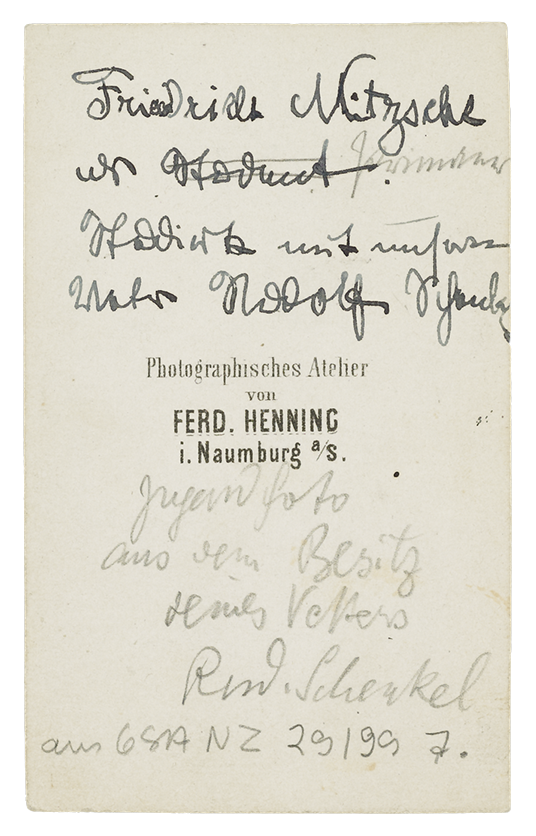 Friedrich Nitzsche
als Student. Primaner
Studierte mit unserem
Vater Rudolf Schenkel
Photographisches Atelier
von
FERD. HENNING
i. Naumburg a/S.
Jugendfoto
aus dem Besitz
seines Vetters
Rud. Schenkel
aus GSA NZ 29/99 7.